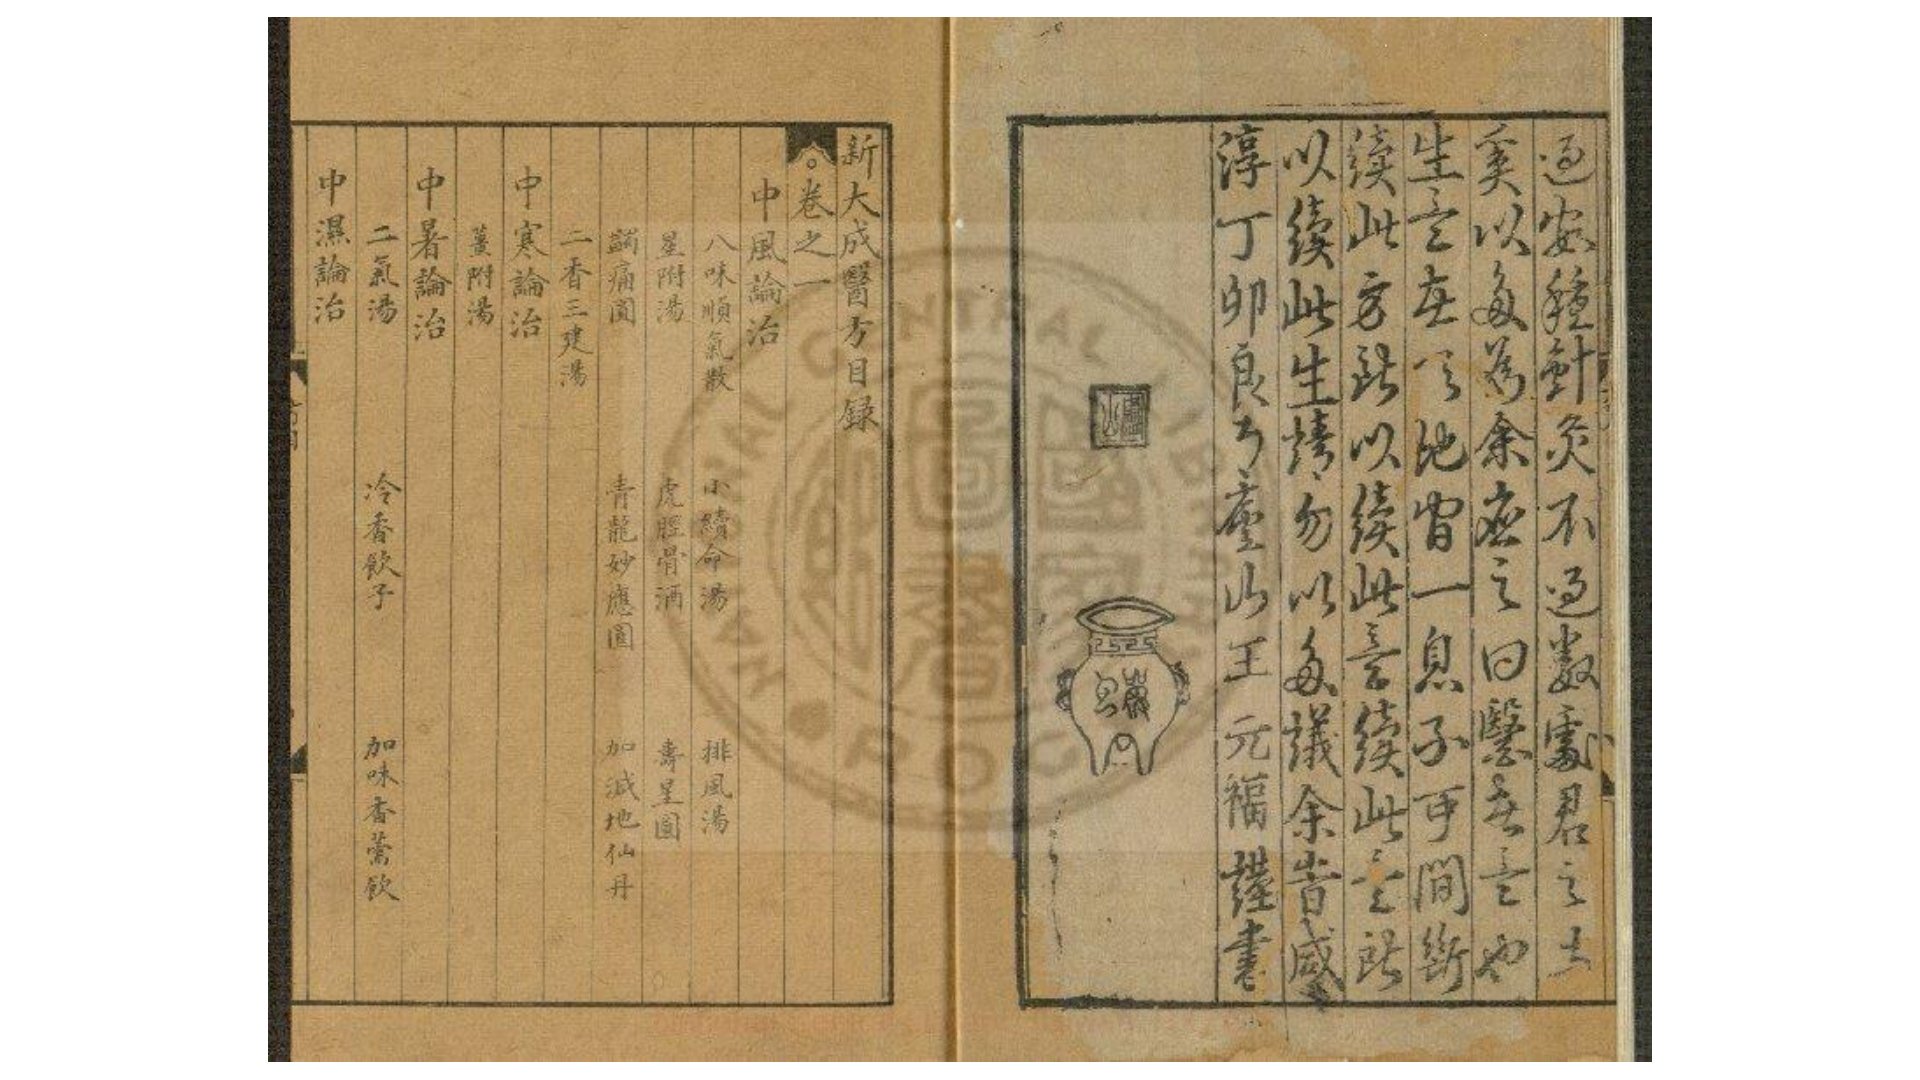 過安穩針灸不過數處君之
奚以多為余應之曰醫者意也
生意在天地皆一息不可間斷
續此方所以續此意續此意所
以續此生請勿以多議余皆咸
淳丁卯良月廬山王元福謹書
新大成醫方目錄
卷之一
中風論治
八味順氣散 小續命湯 排風湯
星附湯 虎脛骨酒 壽星圓
蠲痛圓 青龍妙應圓 加減地仙丹
二香三建湯
中寒論治
薑附湯
中暑論治
二氣湯 冷香飲子 加味香薷飲
中濕論治
NATIONAL CENTRAL LIBRARY